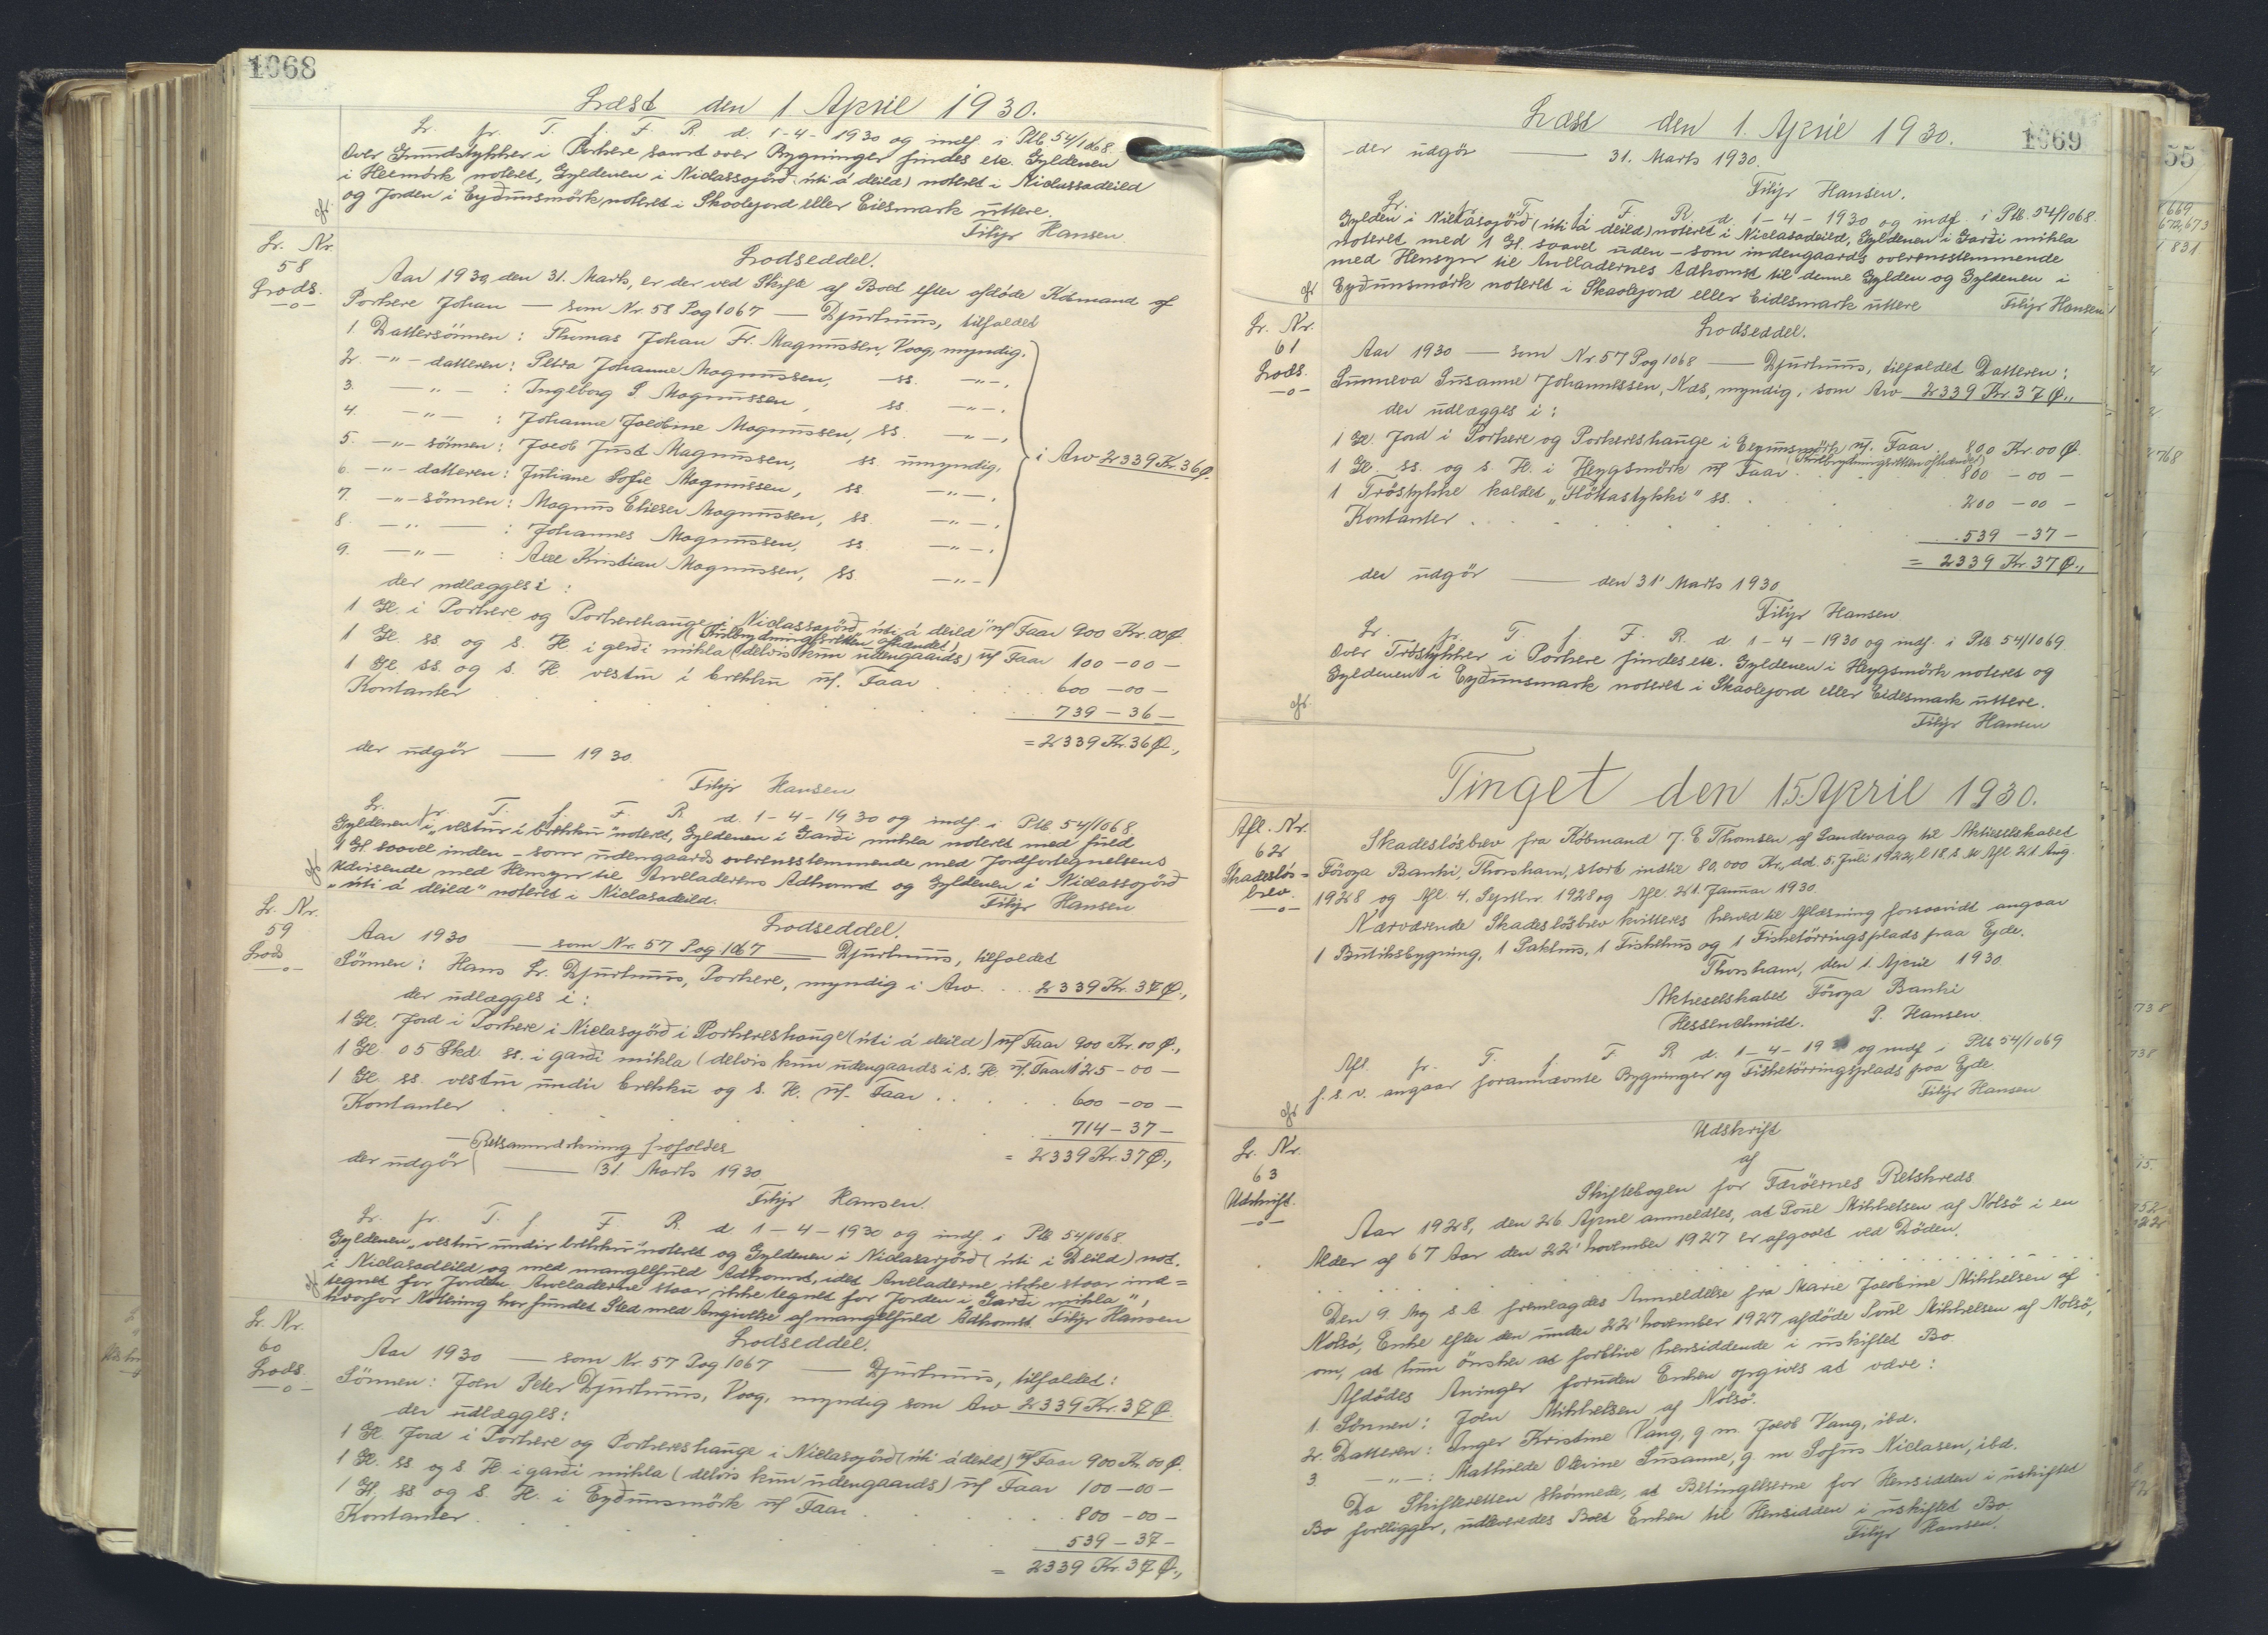 1068
Læst den 1 April 1930.
Lr. fr. T. f. F. R. d. 1-4-1930 og indf. i Ptb 54/1068.
Over Grundstykker i Porkere samt over Bygninger findes etc. Gyldenen
i Heimörk noteret, Gyldenen i Niclassajörð (úti á deild) noteret i Niclassadeild
og Jorden i Eyðunsmörk noteret i Skaalejord eller Eiesmark uttere.
Filip Hansen
Lr. Nr.
58
Lods.
Lodseddel.
Aar 1930, den 31. Marts, er der ved Skifte af Boet efter afdöde Köbmand af
Porkere Johan — som Nr. 58 Pag 1067 — Djurhuus, tilfaldet
1. Dattersönnen: Thomas Johan Fr. Magnussen, Vaag, myndig.
2. -"- datteren: Petra Johanne Magnussen, ss. -"-,
3. -"- : Ingeborg S. Magnussen, ss. -"-,
4. -"- : Johanne Jacobine Magnussen, ss. -"-,
5. -"- sönnen: Jacob Just Magnussen, ss. umyndig,
i Arv 2339 Kr. 36 Ø.
6. -"- datteren: Juliane Sofie Magnussen, ss. -"-,
7. -"- sönnen: Magnus Elieser Magnussen, ss. -"-,
8. -"- : Johannes Magnussen, ss. -"-,
9. -"- : Axel Kristian Magnussen, ss. -"-
der udlægges i :
1 Gl. i Porkere og Porkerehauge i Niclassajörð úti á deild" m/ Faar 900 Kr. 00 Ø
(Fribrydningsretten afhændet)
1 Gl. ss. og s. H. i gerði mikla (delvis kun udengaards) m/ Faar 100 - 00 -
1 Gl. ss. og s. H. vestur í brekku m/. Faar . . . 600 - 00 -
Kontanter . . . 739 - 36 -
= 2339 Kr. 36 Ø.,
der udgör — 1930.
Filip Hansen
Lr. fr. T. f. F. R. d. 1-4-1930 og indf. i Ptb 54/1068
Gyldenen i „vestur í brekku" noteret, Gyldenen i Garði mikla noteret med fuld
1 Gl. saavel inden- som udengaards overensstemmende med Jordfortegnelsens
Udvisende med Hensyn til Arveladerens Adkomst og Gyldenen i Niclassajörð
„úti á deild" noteret i Niclasadeild.
Filip Hansen
Lr. Nr.
59
Lods
Lodseddel.
Aar 1930 — som Nr. 57 Pag 1067 — Djurhuus, tilfaldet
Sönnen: Hans Lr. Djurhuus, Porkere, myndig i Arv . . . 2339 Kr. 37 Ø.,
der udlægges i :
1 Gl. Jord i Porkere i Niclasajörð i Porkereshauge (úti á deild) m/ Faar 900 Kr. 00 Ø.,
1 Gl. 05 Skd. ss. i garði mikla (delvis kun udengaards i s. H. m/. Faar 125 - 00 -
1 Gl. ss. vestur undir brekku og s. H. m/. Faar . . . 600 - 00 -
Kontanter . . . 714 - 37 -
= 2339 Kr. 37 Ø.,
— Retsanmærkning frafaldes
der udgör — 31. Marts 1930
Filip Hansen.
Lr. fr. T. f. F. R. d. 1-4-1930 og indf. i Ptb 54/1068.
Gyldenen „vestur undir brekku" noteret og Gyldenen i Niclasarjörð (úti i Deild) not.
i Niclasadeild og med mangelfuld Adkomst, idet Arveladerne ikke staar ind=
tegnet for Jorden. Arveladerne staar ikke tegnet for Jorden i „Garði mikla",
hvorfor Notering har fundet Sted med Angivelse af mangelfuld Adkomst. Filip Hansen
Lr. Nr.
60
Lods.
Lodseddel.
Aar 1930 — som Nr. 57 Pag 1067 — Djurhuus, tilfaldet:
Sönnen: Joen Peter Djurhuus, Vaag, myndig som Arv 2339 Kr. 37 Ø.
der udlægges:
1 Gl. Jord i Porkere og Porkereshauge i Niclasajörð (úti á deild) m/ Faar 900 Kr. 00 Ø.
1 Gl. ss. og s. H. i garði mikla (delvis kun udengaards) m/ Faar 100 - 00 -
1 Gl. ss. og s. H. i Eyðunsmörk m/ Faar . . . 800 - 00 -
Kontanter . . . 539 - 37 -
= 2339 Kr. 37 Ø.,
Læst den 1. April 1930.
1069
der udgör — 31. Marts 1930.
Filip Hansen.
Lr. fr. T. f. F. R. d. 1-4-1930 og indf. i Ptb. 54/1068.
Gylden i Niclasajörð (úti á deild) noteret i Niclasadeild, Gyldenen i Garði mikla
noteret med 1 Gl. saavel uden- som indengaards overensstemmende
med Hensyn til Arveladernes Adkomst til denne Gylden og Gyldenen i
Eyðunsmörk noteret i Skaalejord eller Eidesmark uttere Filip Hansen
Lr. Nr.
61
Lods.
Lodseddel.
Aar 1930 — som Nr. 57 Pag 1068 — Djurhuus, tilfaldet Datteren:
Sunneva Susanne Johannessen, Næs, myndig, som Arv 2339 Kr. 37 Ø.,
der udlægges i :
1 Gl. Jord i Porkere og Porkereshauge i Eyðunsmörk m/. Faar . 800 Kr. 00 Ø.
(Fribrydningsretten afhændet)
1 Gl. ss. og s. H. i Heygsmörk m/ Faar . . . 800 - 00 -
1 Tröstykke kaldet „Flöttastykki" ss. . . . 200 - 00 -
Kontanter . . . 539 - 37 -
= 2339 Kr. 37 Ø.,
der udgör — den 31' Marts 1930
Filip Hansen
Lr. fr. T. f. F. R. d. 1-4-1930 og indf. i Ptb 54/1069
Over Tröstykker i Porkere findes etc. Gyldenen i Heygsmörk noteret og
Gyldenen i Eyðunsmark noteret i Skaalejord eller Eidesmark uttere.
Filip Hansen
Tinget den 15. April 1930.
Afl. Nr.
62
Skadeslös=
brev.
Skadeslösbrev fra Köbmand J. E Thomsen af Sandevaag til Aktieselskabet
Föroya Banki, Thorshavn, stort indtil 80,000 Kr. dat. 5. Juli 1922, l. 18. s. M. Afl 21. Aug.
1928 og Afl. 4. Septbr. 1928 og Afl. 21. Januar 1930.
Nærværende Skadeslösbrev kvitteres herved til Aflæsning forsaavidt angaar
1 Butiksbygning, 1 Pakhus, 1 Fiskehus og 1 Fisketörringsplads paa Ejde.
Thorshavn, den 1. April 1930.
Aktieselskabet Föroya Banki
Hessenschmidt. P. Hansen.
Afl. fr. T. f. F. R. d. 1-4-19 og indf i Ptb 54/1069
f. s. v. angaar forannævnte Bygninger og Fisketörringsplads paa Ejde.
Filip Hansen
Lr. Nr.
63
Udskrift.
Udskrift
af
Skiftebogen for Færöernes Retskreds.
Aar 1928, den 26 April anmeldtes, at Poul Mikkelsen af Nolsö i en
Alder af 67 Aar den 22' November 1927 er afgaaet ved Döden.
Den 9. Maj s. A. fremlagdes Anmeldelse fra Marie Jacobine Mikkelsen af
Nolsö, Enke efter den under 22' November 1927 afdöde Poul Mikkelsen af Nolsö,
om, at hun önsker at forblive hensiddende i uskiftet Bo.
Afdödes Arvinger foruden Enken opgives at være:
1. Sönnen: Joen Mikkelsen af Nolsö.
2. Datteren: Inger Kristine Vang, g. m. Jacob Vang, ibd.
3. -"- : Mathilde Olevine Susanne, g. m Sofus Niclasen, ibd.
Da Skifteretten skönnede, at Betingelserne for Hensidden i uskiftet
Bo foreligger, udleveredes Boet Enken til Hensidden i uskiftet Bo.
Filip Hansen.